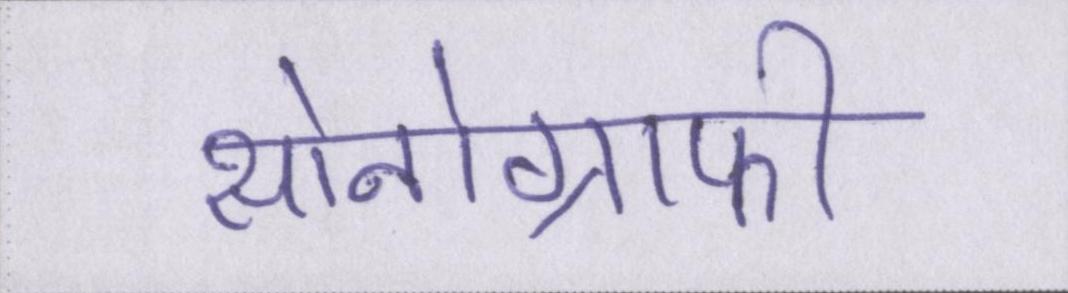 सोनोग्राफी